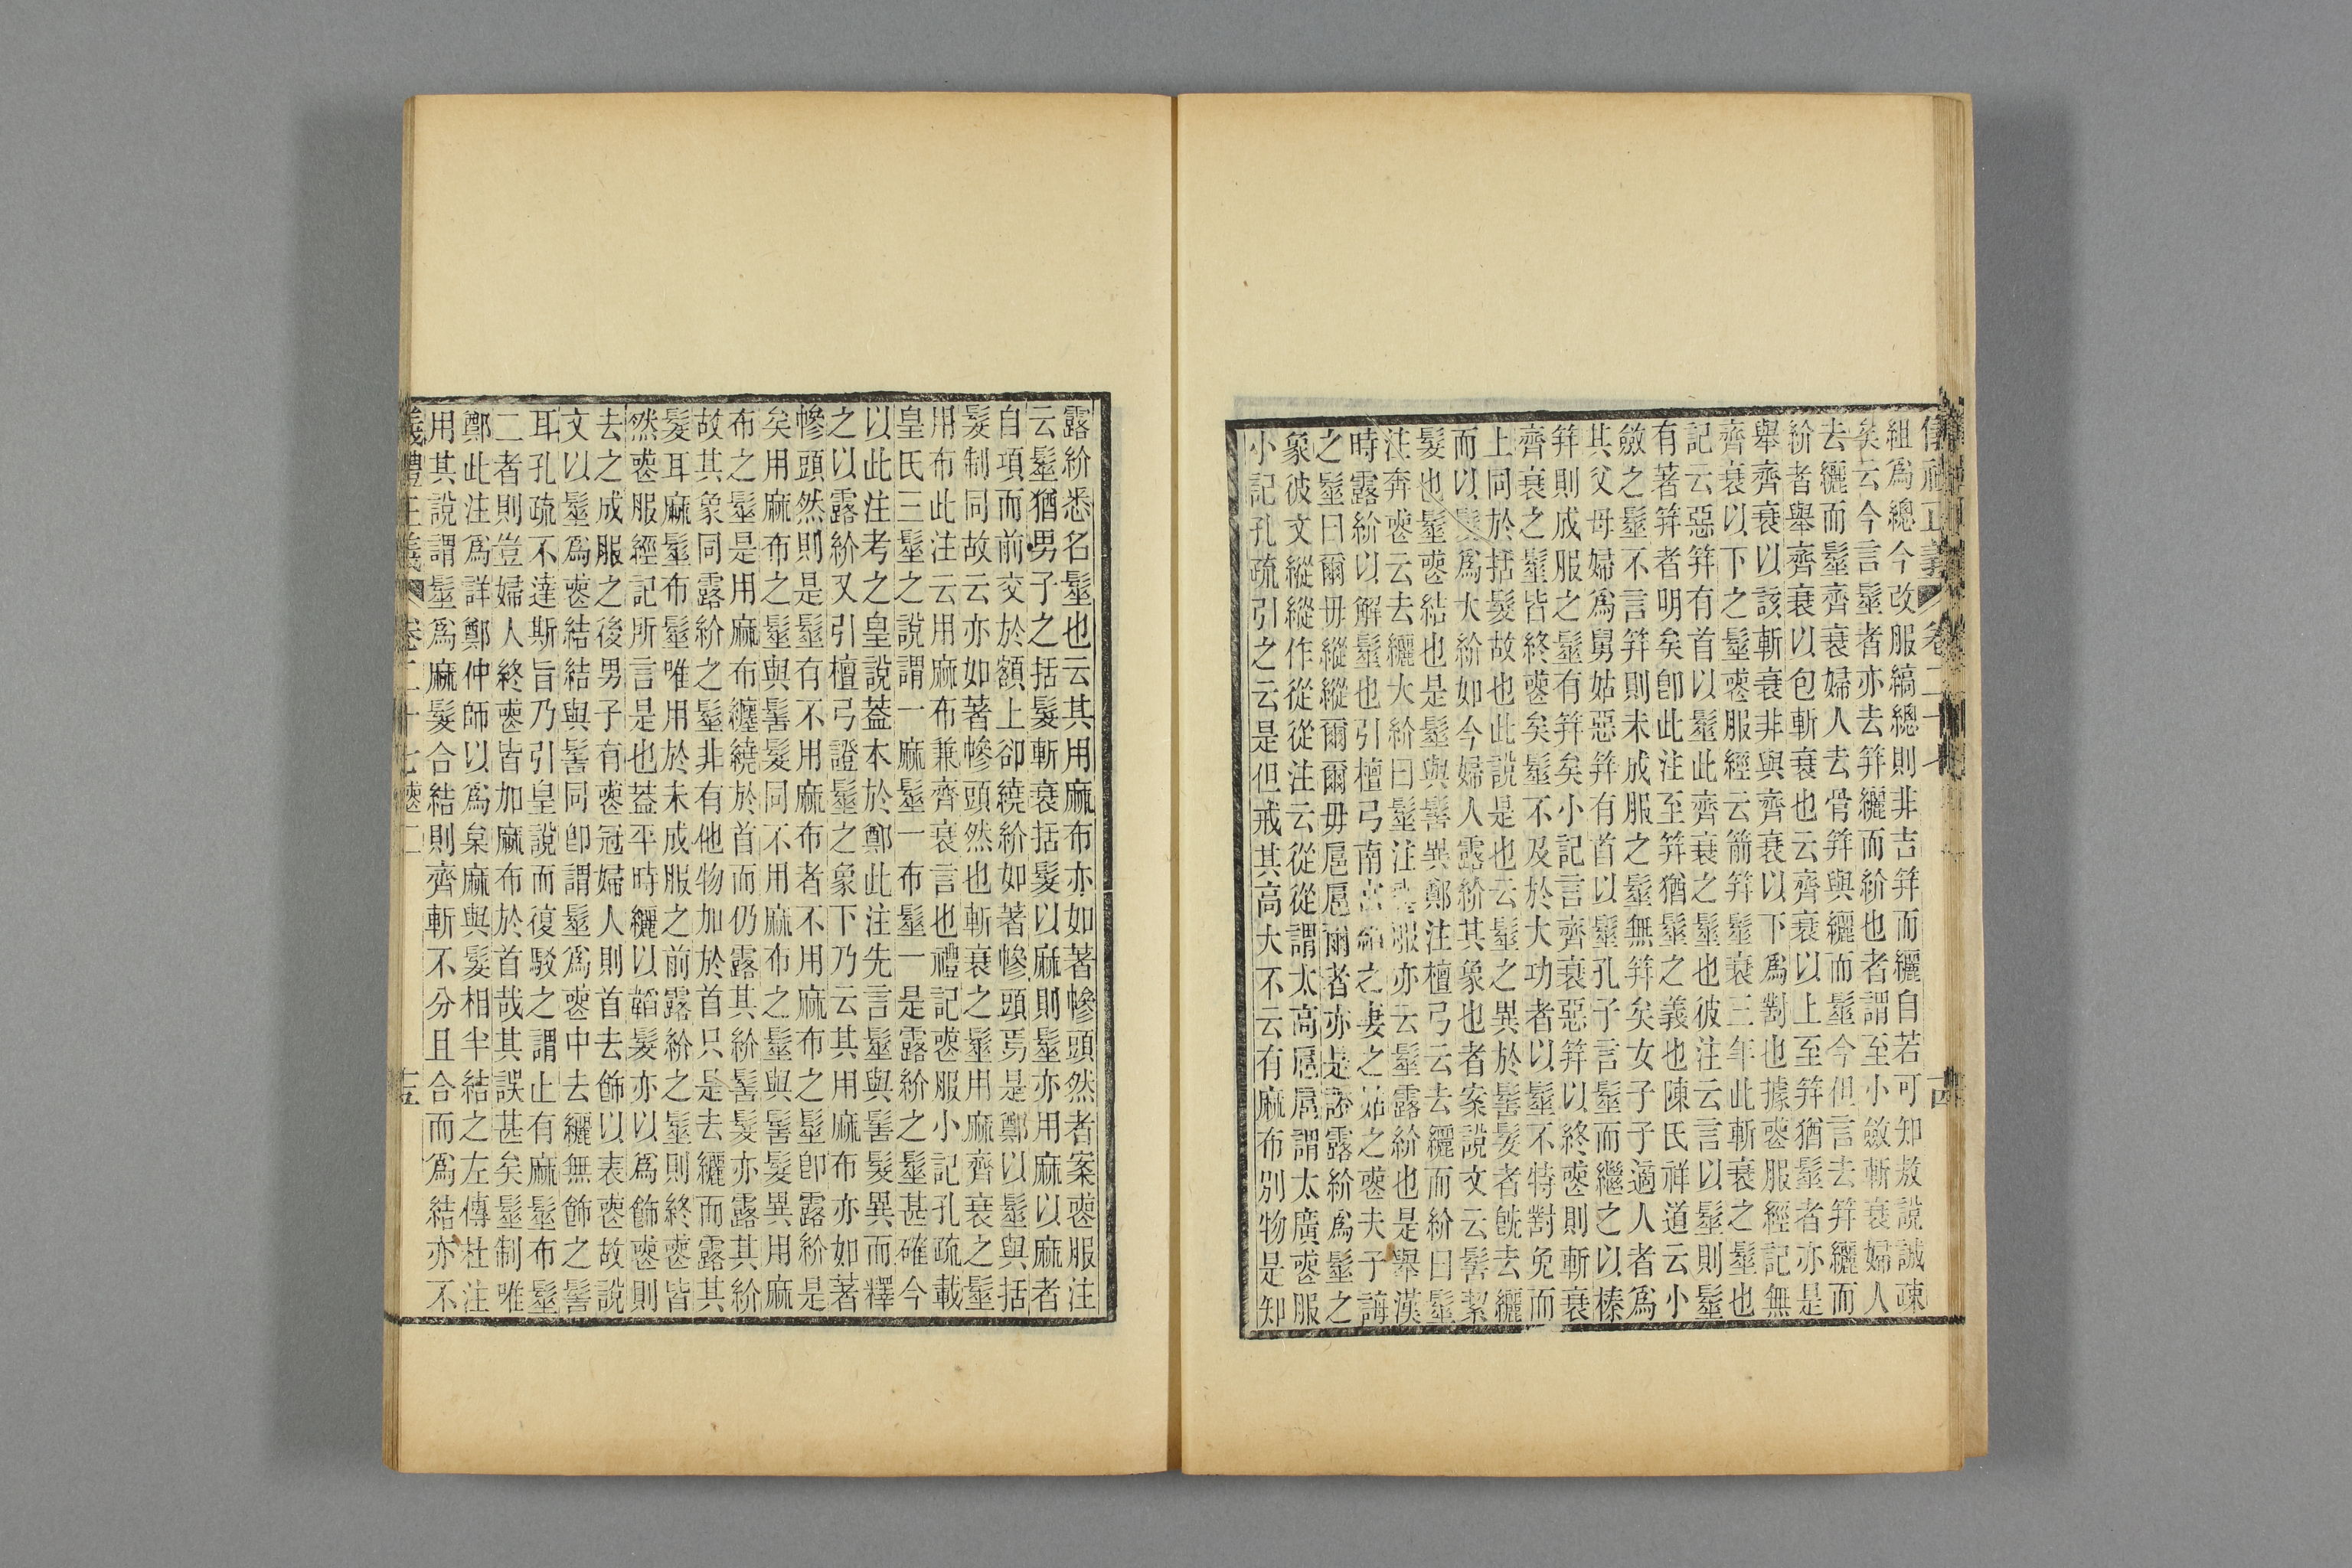 組爲總今改服縞總則非吉笄而纚自若可知敖說誠疎
矣云今言髽者亦去笄纚而紒也者謂至小斂斬衰婦人
去纚而髽齊衰婦人去骨笄與纚而髽今但言去笄纚而
紒者舉齊衰以包斬衰也云齊衰以上至笄猶髽者亦是
舉齊衰以該斬衰非與齊衰以下爲對也據喪服經記無
齊衰以下之髽喪服經云箭笄髽衰三年此斬衰之髽也
記云惡笄有首以髽此齊衰之髽也彼注云言以髽則髽
有著笄者明矣卽此注至笄猶髽之義也陳氏祥道云小
斂之髽不言笄則未成服之髽無笄矣女子子適人者爲
其父母婦爲舅姑惡笄有首以髽孔子言髽而繼之以榛
笄則成服之髽有笄矣小記言齊衰惡笄以終喪則斬衰
齊衰之髽皆終喪矣髽不及於大功者以髽不特對免而
上同於括髮故也此說是也云髽之異於髻髮者旣去纚
而以髮爲大紒如今婦人露紒其象也者案說文云髻絜
髮也髽喪結也是髽與髻異鄭注檀弓云去纚而紒曰髽
注奔喪云去纚大紒曰髽注喪服亦云髽露紒也是舉漢
時露紒以解髽也引檀弓南宮縚之妻之姑之喪夫子誨
之髽曰爾毋縱縱爾爾毋扈扈爾者亦是證露紒爲髽之
象彼文縱縱作從從注云從從謂太高扈扈謂太廣喪服
小記孔疏引之云是但戒其高大不云有麻布別物是知
露紒悉名髽也云其用麻布亦如著幓頭然者案喪服注
云髽猶男子之括髮斬衰括髮以麻則髽亦用麻以麻者
自項而前交於額上卻繞紒如著幓頭焉是鄭以髽與括
髮制同故云亦如著幓頭然也斬衰之髽用麻齊衰之髽
用布此注云用麻布兼齊衰言也禮記喪服小記孔疏載
皇氏三髽之說謂一麻髽一布髽一是露紒之髽甚確今
以此注考之皇說葢本於鄭此注先言髽與髻髮異而釋
之以露紒又引檀弓證髽之象下乃云其用麻布亦如著
幓頭然則是髽有不用麻布者不用麻布之髽卽露紒是
矣用麻布之髽與髻髮同不用麻布之髽與髻髮異用麻
布之髽是用麻布纏繞於首而仍露其紒髻髮亦露其紒
故其象同露紒之髽非有他物加於首只是去纚而露其
髮耳麻髽布髽唯用於未成服之前露紒之髽則終喪皆
然喪服經記所言是也葢平時纚以韜髮亦以爲飾喪則
去之成服之後男子有喪冠婦人則首去飾以表喪故說
文以髽爲喪結結與髻同卽謂髽爲喪中去纚無飾之髻
耳孔疏不達斯旨乃引皇說而復駁之謂止有麻髽布髽
二者則豈婦人終喪皆加麻布於首哉其誤甚矣髽制唯
鄭此注爲詳鄭仲師以爲枲麻與髮相半結之左傳杜注
用其說謂髽爲麻髮合結則齊斬不分且合而爲結亦不